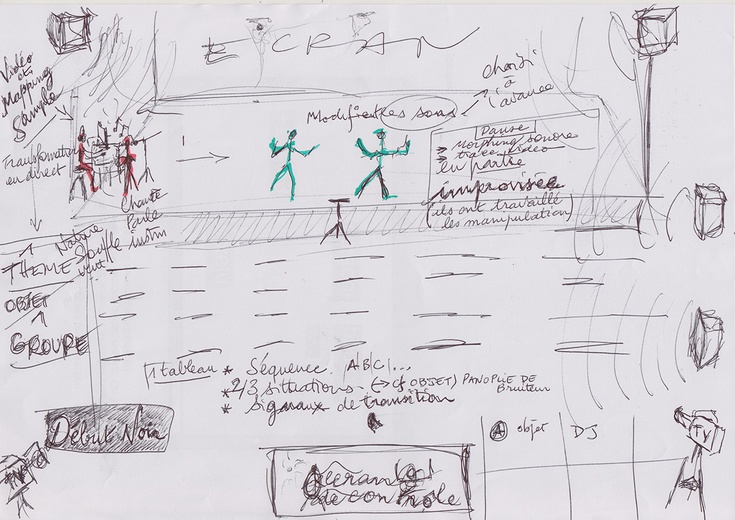 ECRAN
Vidéo
et
Mapping
Sample
Transformation
en direct
choisi
à
l'avance
Modifient les sons
Danse
→ Morphing sonore
→ trace vidéo
en partie
improvisée
ils ont travaillé
les manipulation
Chante
Parle
Instru
Nature
THEME Souffle
vent
OBJET
GROUPE
1 tableau * Séquence. A/B/C/...
* 2/3 situations. (→ cf OBJET) PANOPLIE DE
Bruiteur
* Signaux de transition
Début Noir
Ecran(s)
de contrôle
A objet
DJ